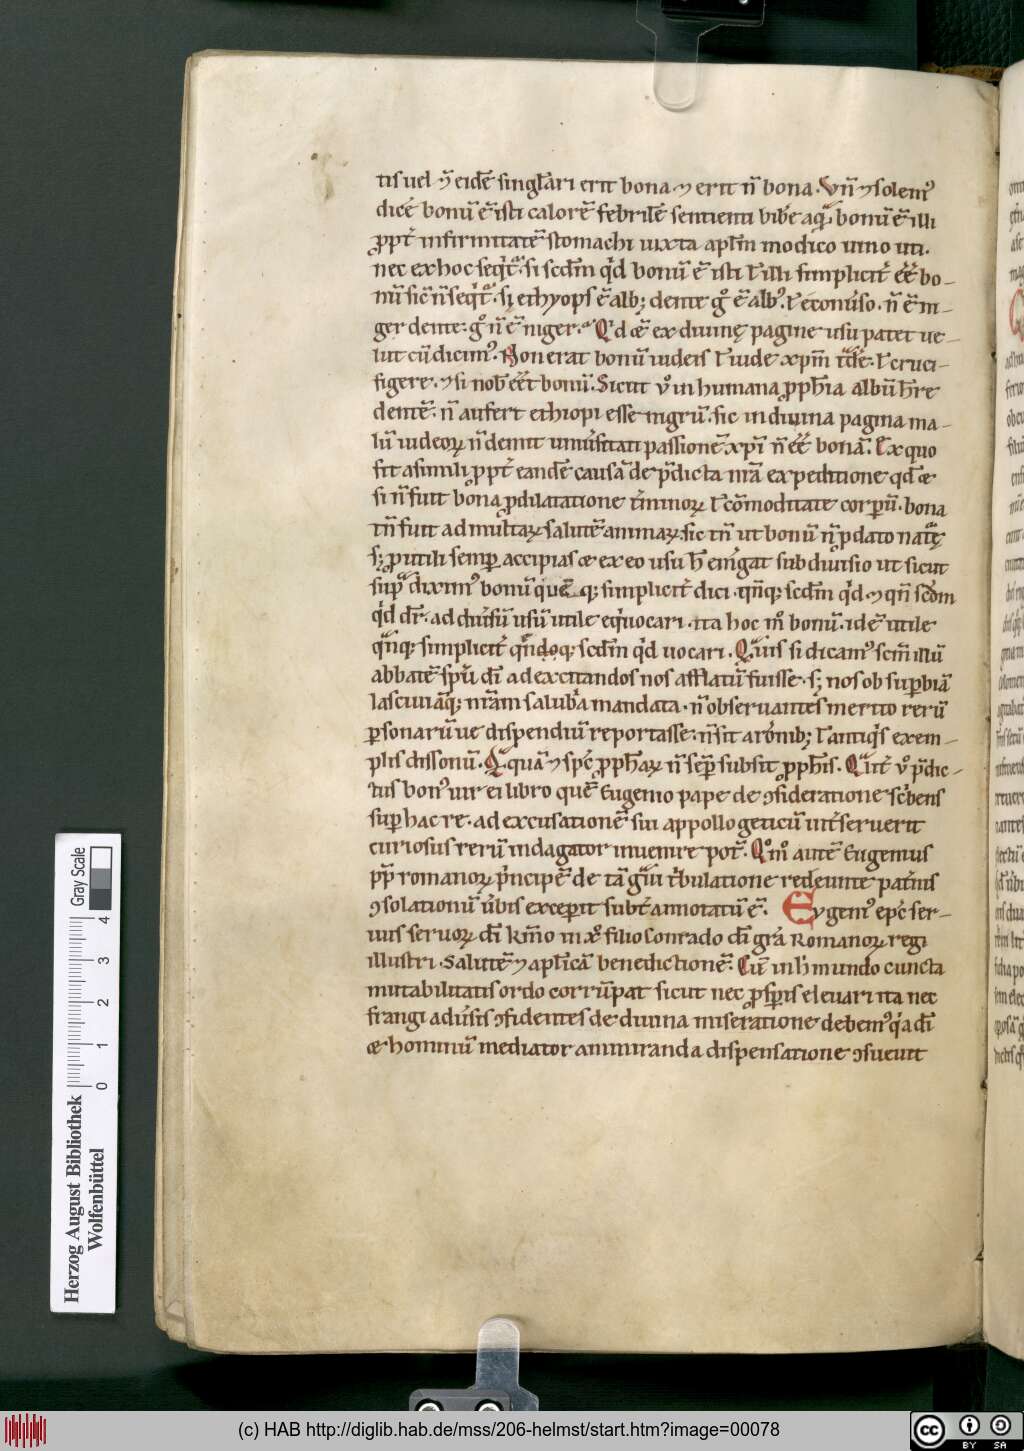 tis uel ⁊ eidē singl̄ari erit bona ⁊ erit n̄ bona. Vn̄ ⁊ solem᷒
dicē bonū ē isti calorē febrilē sentienti bibe aq̄ bonū ē illi
ꝓpt̄ infirmitatē stomachi iuxta apl̄m modico uino uti.
nec ex hoc seqͥt. si scd̄m qͥd bonū ē isti l̄ illi simplicit̄ ēē bo-
nū sic n̄ seqͥt. sꝫ ethyops ē albꝫ dente gͦ ē alb᷒. l̄ econūso. n̄ ē ni-
ger dente. gͦ n̄ ē niger. Qd æ ex diuinę pagine usu patet ue-
lut cū dicim᷒. Non erat bonū iudeis l̄ iude xp̄m td̄e. l̄ cruci-
figere. ⁊ si nob̄ ēēt bonū. Sicut v̊ in humana ꝓph̄ia albū h̄re
dentē. n̄ aufert ethiopi esse nigrū. sic in diuina pagina ma-
lū iudeoꝝ n̄ demit uniūsitati passionē xp̄i n̄ ēē bonā. Ex quo
fit a simili ꝓpt̄ eandē causā de p̄dicta nr̄a expeditione qd æ
si n̄ fuit bona ꝓ dilatatione t̄minoꝝ l̄ cōmoditate corpꝝ. bona
tn̄ fuit ad multaꝝ salutē animaꝝ. sic tn̄ ut bonū n̄ ꝓ dato natę
sꝫ ꝓ utili semꝑ accipias æ ex eo usu h̄ em̄gat subdiuisio ut sicut
supͣ dixim᷒ bonū quē qꝫ simplicit̄ dici. qn̄qꝫ scd̄m qͥd ⁊ qn̄ scd̄m
qͥd dr̄. ad diūsū usū utile eqͥuocari. ita hoc m̊ bonū. idē utile
qn̄qꝫ simplicit̄ qn̄doqꝫ scd̄m qͥd uocari. Qͣuis si dicam᷒ scm̄ illū
abbatē sp̄u dī ad excitandos nos afflatū fuisse. sꝫ nos ob suꝑbiā
lasciuiāqꝫ nr̄am salub̄a mandata. n̄ obseruantes merito rerū
ꝑsonarū ue dispendiū reportasse. n̄ sit ar̄onibꝫ l̄ antiqͥs exem-
plis dissonū. Qͣ quā ⁊ sp̄c ꝓph̄aꝝ n̄ seꝑ subsit ꝓph̄is. Qͣlit̄ v̊ p̄dic-
tus bon᷒ uir ei libro quē Eugenio pape de ꝯsideratione sc̄bens
suꝑ hac re. ad excusationē sui appollogeticū int̄seruerit
curiosus rerū indagator inuenire pot̄. Qͦm̊ autē Eugenius
pp̄ romanoꝝ pͥncipē de tā gͣui tͥbulatione redeunte pat̄nis
ꝯsolationū ūbis exceꝑit subt̄ annotatū ē. Eygeni᷒ epc̄ ser-
uus seruoꝝ dī k̄mo in xͦ filio Conrado dī grā Romanoꝝ regi
illustri. Salutē ⁊ apl̄icā benedictionē. Cū in h̄ mundo cuncta
mutabilitatis ordo corrūpat sicut nec ꝓsꝑis eleuari ita nec
frangi adūsis ꝯfidentes de diuina miseratione debem᷒ qͥa dī
æ hominū mediator ammiranda dispensatione ꝯsueuit
Herzog August Bibliothek
Wolfenbüttel
Gray Scale
0 1 2 3 4
(c) HAB http://diglib.hab.de/mss/206-helmst/start.htm?image=00078
cc BY SA